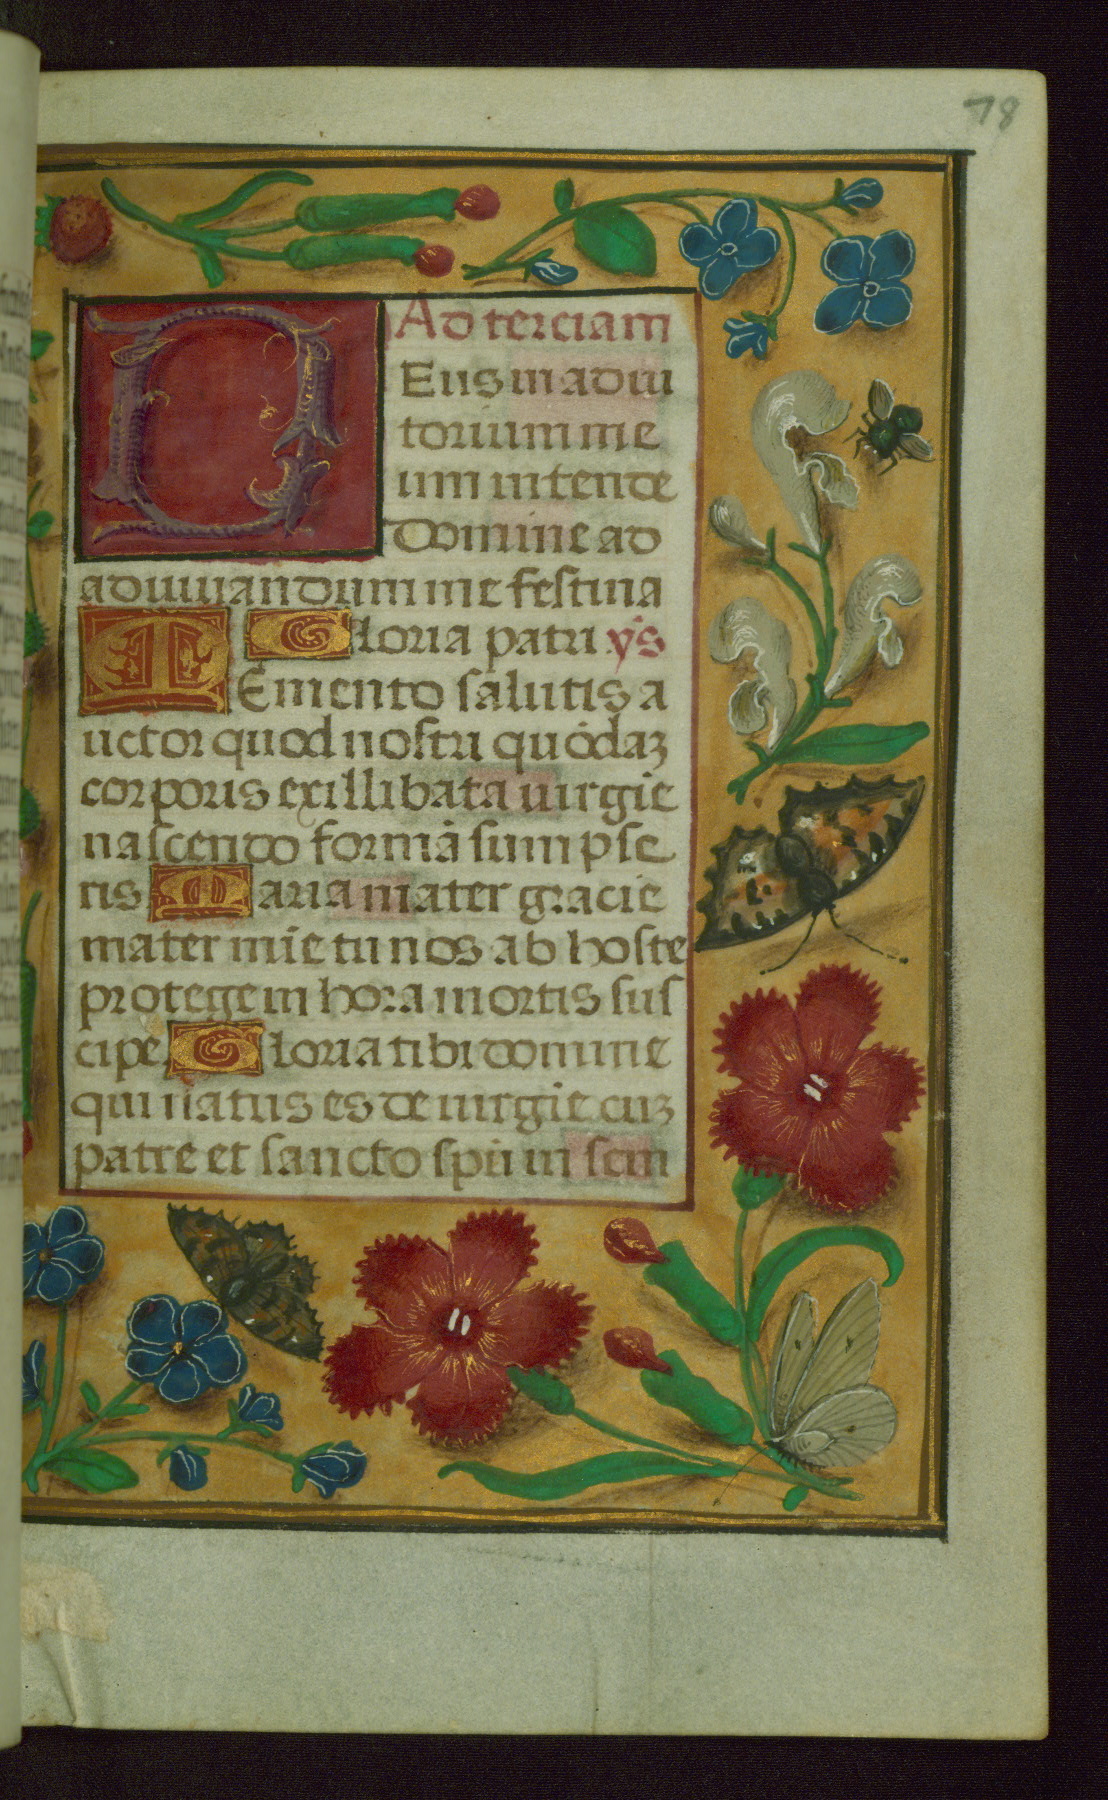 78
Ad terciam
DEus in adiu
torium me
um intende
Domine ad
adiuuandum me festina
Gloria patri ẏs
MEmento salutis a
uctor quod nostri quōdaʒ
corporis ex illibata uirgīe
nascendo formā sumpse
ris Maria mater gracie
mater mīe tu nos ab hoste
protege in hora mortis sus
cipe Gloria tibi domine
qui natus es de uirgīe cuʒ
patre et sancto spū in sem